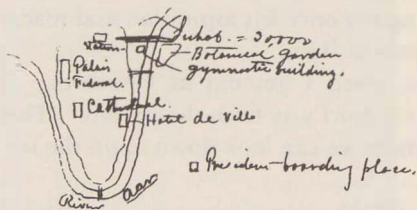 Inhab. = 30,000
Station.
Botanical Garden
gymnastic building.
Palais
Federal.
Cathedral.
Hotel de Ville
boarding place.
River Aar